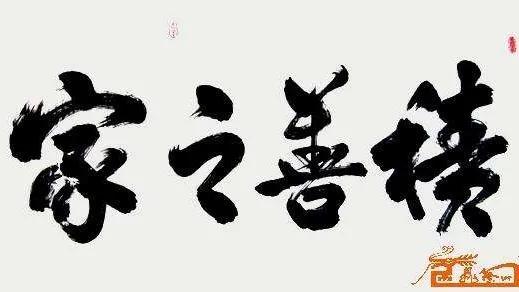 積善之家